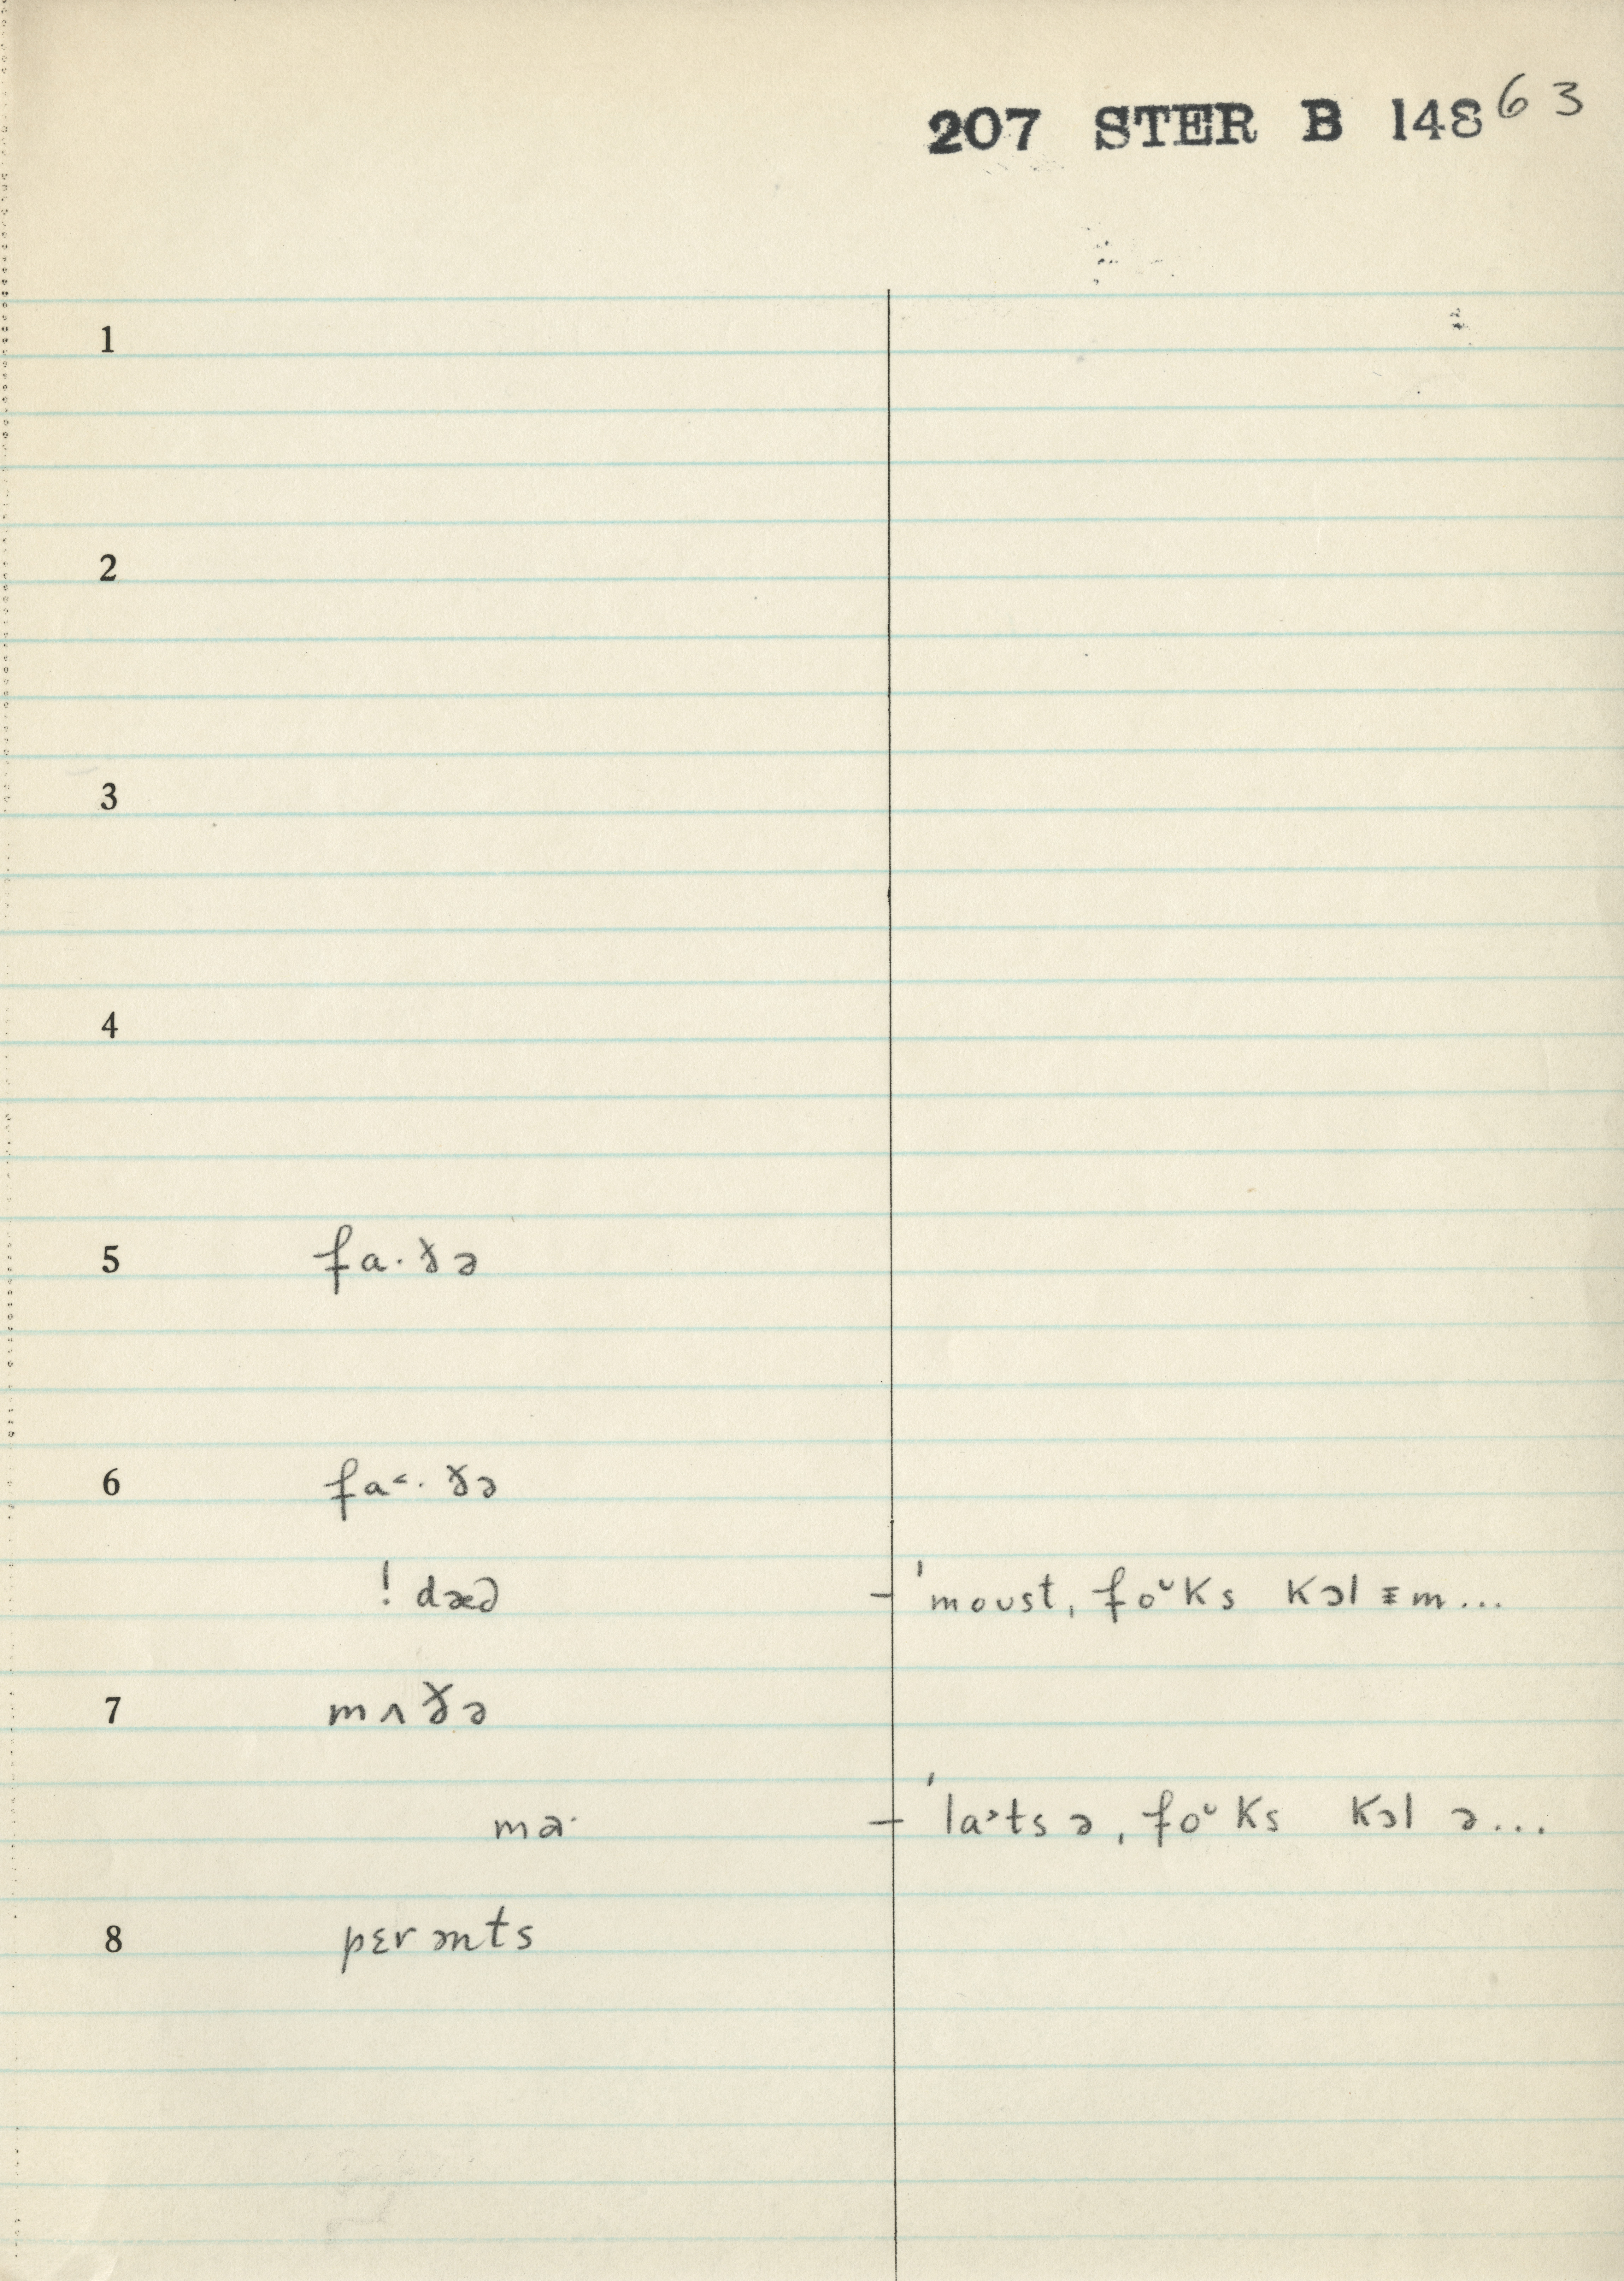 207 STER B 148 63
1
2
3
4
5 fa·ɤə
6 fa˂·ɤə
! dæə – ˈmoust, foᵘks kɔl ᵻm...
7 mʌɤə
– ˈla˃tsə, foᵘks kɔl ə...
8 pɛrənts